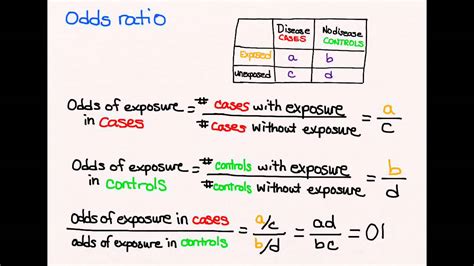 Odds ratio
Disease CASES No disease CONTROLS
Exposed a b
unexposed c d
Odds of exposure in cases = # cases with exposure / # cases without exposure = a / c
Odds of exposure in controls = # controls with exposure / # controls without exposure = b / d
Odds of exposure in cases / odds of exposure in controls = a/c / b/d = ad / bc = OI